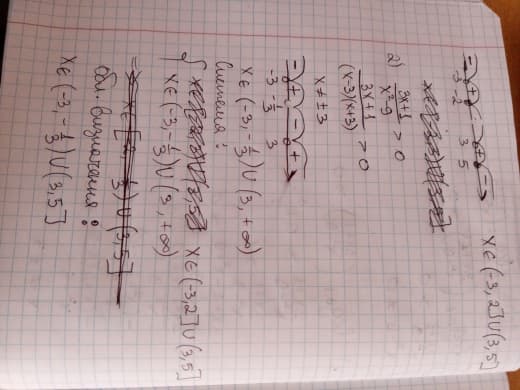 X∈(-3,2]∪(3,5]
- + - + -
-3 -2 3 5
2) (3x+1)/(x²-9) > 0
(3x+1)/((x-3)(x+3)) > 0
x ≠ ±3
- + - +
-3 -1/3 3
X∈(-3,-1/3)∪(3,+∞)
Система:
X∈(-3,2]∪(3,5]
X∈(-3,-1/3)∪(3,+∞)
=> X∈[-2,-1/3)∪(3,5]
Обл. визначення:
X∈(-3,-1/3)∪(3,5]